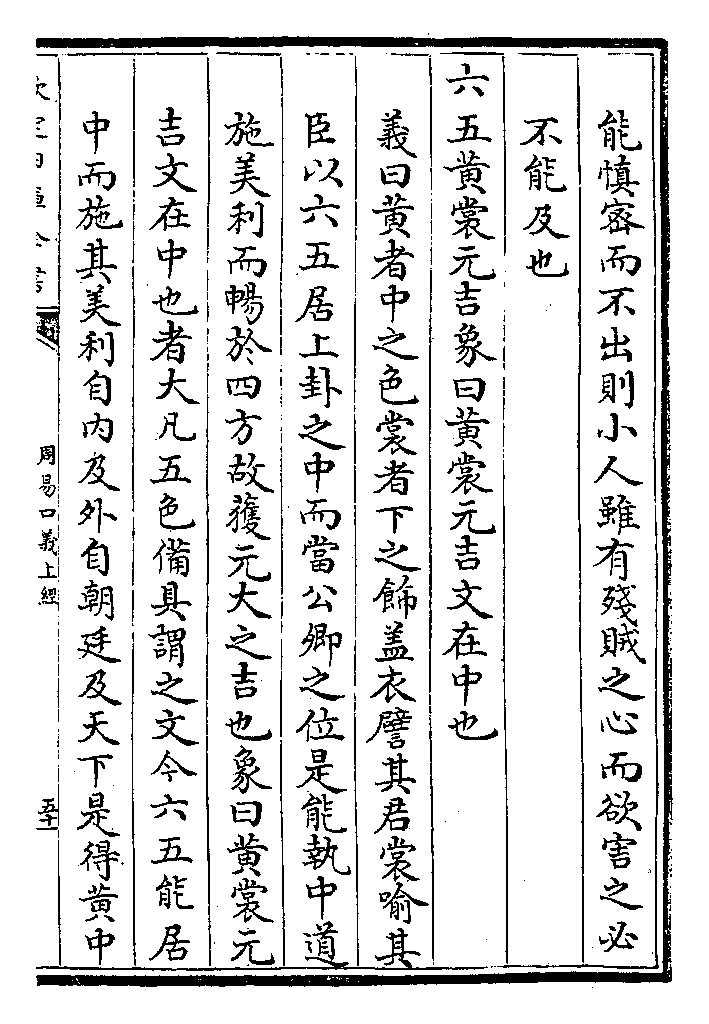 能慎宻而不出則小人雖有殘賊之心而欲害之必
不能及也
六五黄裳元吉象曰黄裳元吉文在中也
義曰黄者中之色裳者下之飾盖衣譬其君裳喻其
臣以六五居上卦之中而當公卿之位是能執中道
施美利而暢於四方故獲元大之吉也象曰黄裳元
吉文在中也者大凡五色備具謂之文今六五能居
中而施其美利自内及外自朝廷及天下是得黄中
周易口義上經